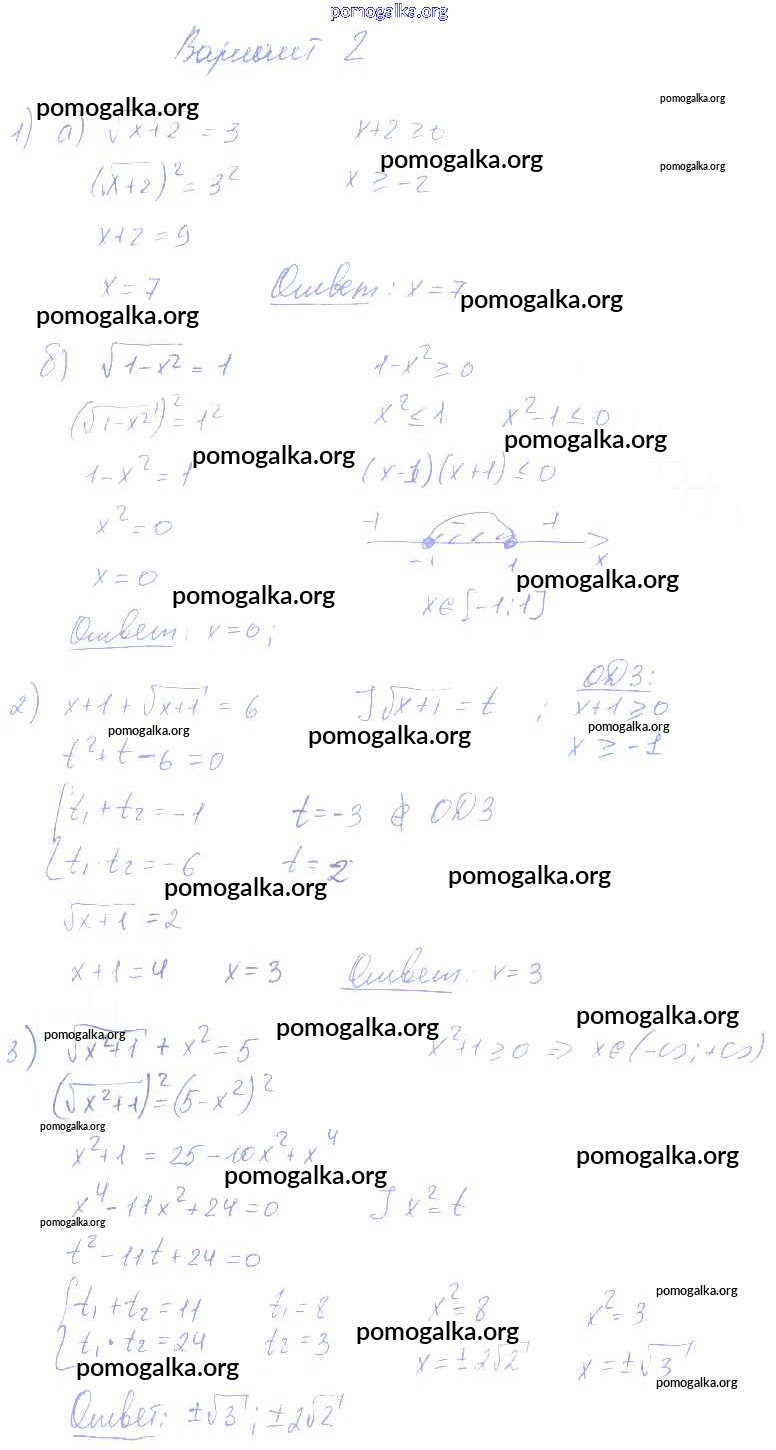 pomogalka.org
Вариант 2
pomogalka.org pomogalka.org
1) а) √x+2 = 3 x+2 ≥ 0
pomogalka.org pomogalka.org
(√x+2)² = 3² x ≥ -2
x+2 = 9
x = 7 Ответ: x = 7
pomogalka.org
pomogalka.org
б) √1-x² = 1 1-x² ≥ 0
(√1-x²)² = 1² x² ≤ 1 x²-1 ≤ 0
pomogalka.org
pomogalka.org
1-x² = 1 (x-1)(x+1) ≤ 0
x² = 0 -1 - -1
x = 0 -1 1 x
pomogalka.org pomogalka.org
x∈[-1;1]
Ответ: x=0;
ОДЗ:
2) x+1+√x+1 = 6 ] √x+1 = t ; x+1 ≥ 0
pomogalka.org pomogalka.org pomogalka.org
t²+t-6 = 0 x ≥ -1
{t₁+t₂ = -1 t = -3 ∉ ОДЗ
t₁·t₂ = -6 t = 2
pomogalka.org pomogalka.org
√x+1 = 2
x+1 = 4 x = 3 Ответ: x = 3
pomogalka.org pomogalka.org pomogalka.org
3) √x²+1 + x² = 5 x²+1 ≥ 0 => x∈(-∞;+∞)
(√x²+1)² = (5-x²)²
pomogalka.org
x²+1 = 25-10x²+x⁴
pomogalka.org pomogalka.org
x⁴-11x²+24=0 ] x² = t
pomogalka.org
t²-11t+24=0
pomogalka.org
{t₁+t₂=11 t₁=8 x²=8 x²=3
pomogalka.org
t₁·t₂=24 t₂=3 x=±2√2 x=±√3
pomogalka.org pomogalka.org
Ответ: ±√3; ±2√2